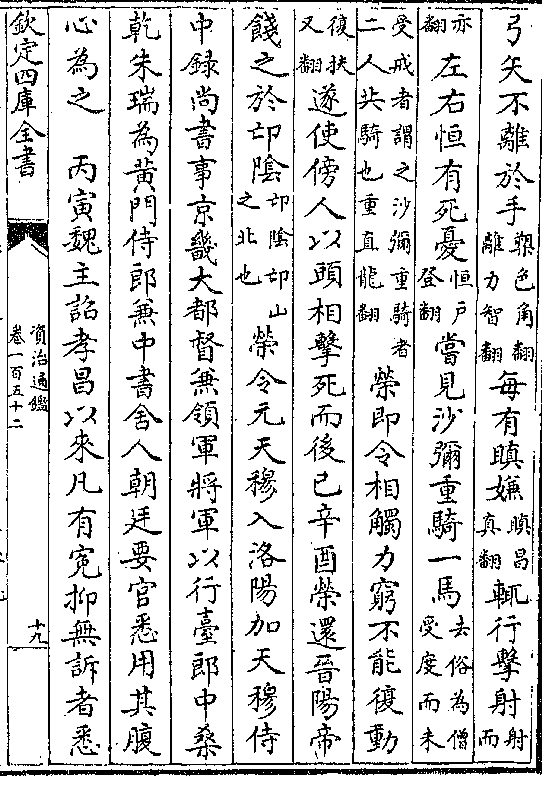 弓矢不離於手槊色角翻離力智翻每有瞋嫌瞋昌真翻輒行擊射射而
亦翻左右恒有死憂恒戶登翻嘗見沙彌重騎一馬去俗為僧受度而未
受戒者謂之沙彌重騎者二人共騎也重直龍翻榮即令相觸力窮不能復動
復扶又翻遂使傍人以頭相擊死而後已辛酉榮還晉陽帝
餞之於邙陰邙陰邙山之北也榮令元天穆入洛陽加天穆侍
中録尚書事京畿大都督兼領軍將軍以行臺郎中桑
乾朱瑞為黃門侍郎兼中書舍人朝廷要官悉用其腹
心為之 丙寅魏主詔孝昌以來凡有寃抑無訴者悉
欽定四庫全書
資治通鑑
卷一百五十二
十九